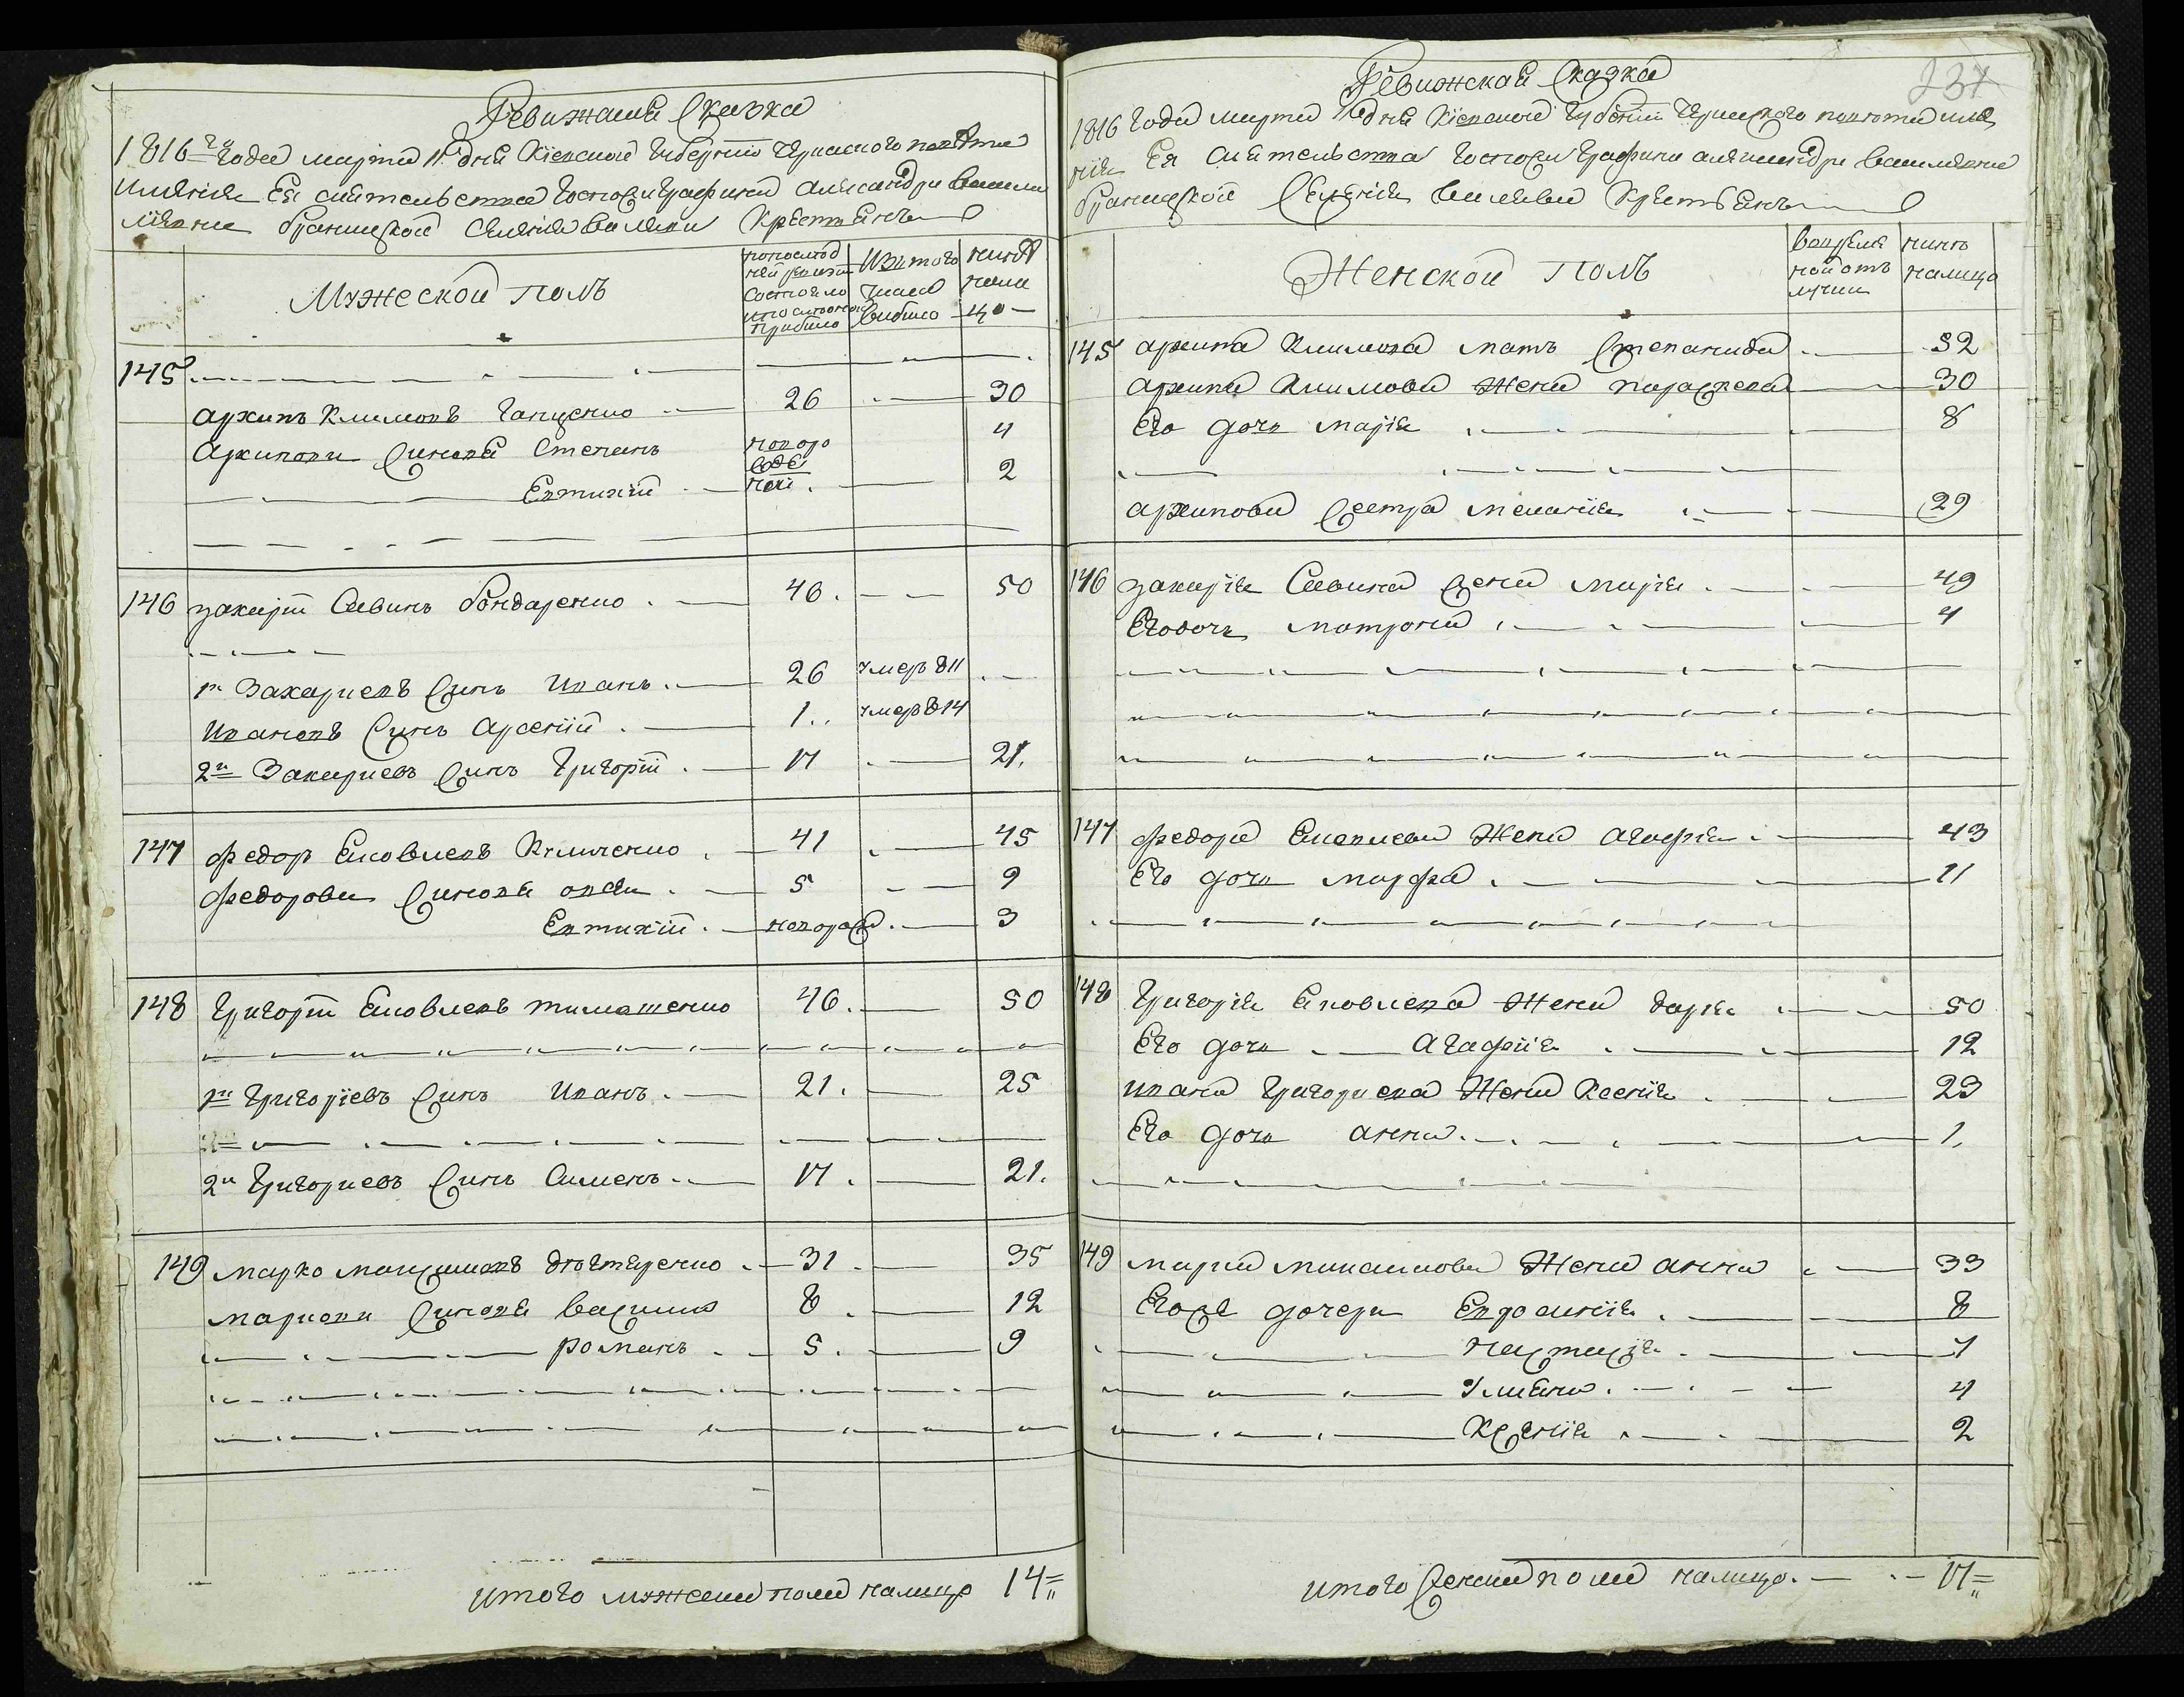 Ревижская Сказка
1816го года марта дня Киевской Губернии Черкаского повѣта
имѣния Ея сиятельства Госпожи Графини александри васили
евни браницкой Селения Крестьянъ
Мужеской полъ
попослѣд ней ревизии состояло ипослѣоной прибыло
Изътого числа выбыло
нинѣ нали цо
145
архипъ Климовъ Гапченко 26 30
Архипови Синовя Степанъ новоро 4
Евтихий 2
146 захарий Савинъ бондаренко 46 50
1й Захариевъ Синъ Иванъ 26 умеръ 811
Ивановъ Синъ Арсений 1 умеръ 814
2й Захариевъ Синъ Григорий 17 21
147 федоръ Яковлевъ 41 45
федорови Синовя 5 9
Евтихий новорож 3
148 Григорий Яковлевъ тимошенко 46 50
1й Григориевъ Синъ Иванъ 21 25
2й Григориевъ Синъ Сименъ 17 21
149 марко 31 35
маркови Синовя василь 8 12
романъ 5 9
итого мужеска пола налицо 14

237
Ревижская Сказка
1816 Года марта дня Киевской Губернии Черкаского повѣта имѣ
ния Ея сиятельства Госпожи Графини александри василиевни
браницкой Селения Крестьянъ
Женской полъ
вовремѣ ной отъ лучки
нинѣ налицо
145 архипа Климова мать Степанида 52
архипа Климова жена параскева 30
Его дочь мария 8
архипова Сестра мелания 29
146 захария Савина жена мария 49
Егодочь матрона 4
147 федора Яковлева Жена агафия 43
Его дочь марфа 11
148 Григория Яковлева Жена дария 50
Его дочь Агафия 12
ивана Григориева Жена Ксения 23
Его дочь анна 1
149 марка Жена анна 33
Егоже дочери Евдокия 8
настасия 7
Улияна 4
Ксения 2
итого женска пола налицо 17